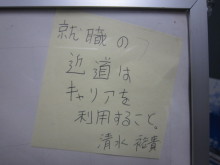 就職の
近道は
キャリアを
利用すること。
清水